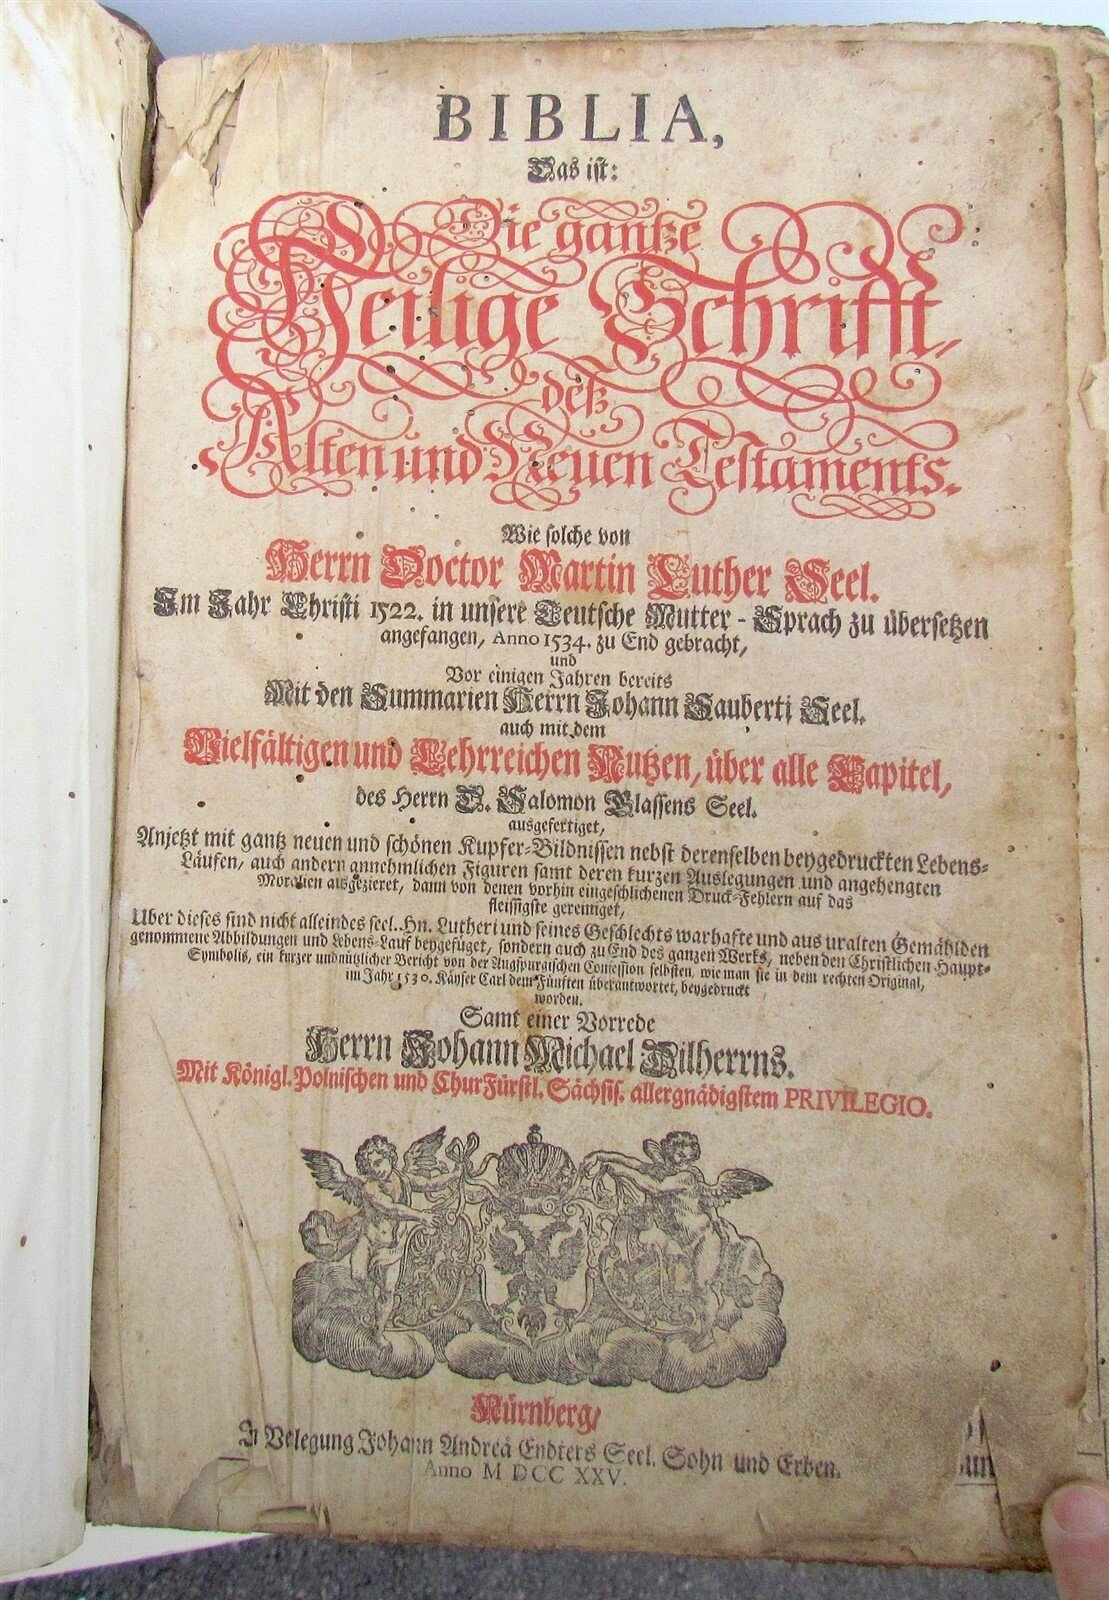 BIBLIA,
Das ist:
Die gantze
Heilige Schrifft,
deß
Alten und Neuen Testaments.
Wie solche von
Herrn Doctor Martin Luther Seel.
Im Jahr Christi 1522. in unsere Teutsche Mutter-Sprach zu übersetzen
angefangen, Anno 1534. zu End gebracht,
und
Vor einigen Jahren bereits
Mit den Summarien Herrn Johann Sauberti Seel.
auch mit dem
Vielfältigen und Lehrreichen Nutzen, über alle Capitel,
des Herrn D. Salomon Glassens Seel.
ausgefertiget,
Anjetzt mit gantz neuen und schönen Kupfer-Bildnissen nebst derenselben beygedruckten Lebens-
Läufen, auch andern annehmlichen Figuren samt deren kurzen Auslegungen und angehengten
Moralien ausgezieret, dann von denen vorhin eingeschlichenen Druck-Fehlern auf das
fleissigste gereiniget,
Uber dieses sind nicht allein des seel. Hn. Lutheri und seines Geschlechts warhafte und aus uralten Gemählden
genommene Abbildungen und Lebens-Lauf beygefüget, sondern auch zu End des ganzen Werks, neben den Christlichen Haupt-
Symbolis, ein kurzer und nützlicher Bericht von der Augspurgischen Confession selbsten, wie man sie in dem rechten Original,
im Jahr 1530. Käyser Carl dem Fünften überantwortet, beygedruckt
worden.
Samt einer Vorrede
Herrn Johann Michael Dilherrns.
Mit Königl. Polnischen und ChurFürstl. Sächsis. allergnädigstem PRIVILEGIO.
Nürnberg/
In Velegung Johann Andreä Endters Seel. Sohn und Erben.
Anno M DCC XXV.